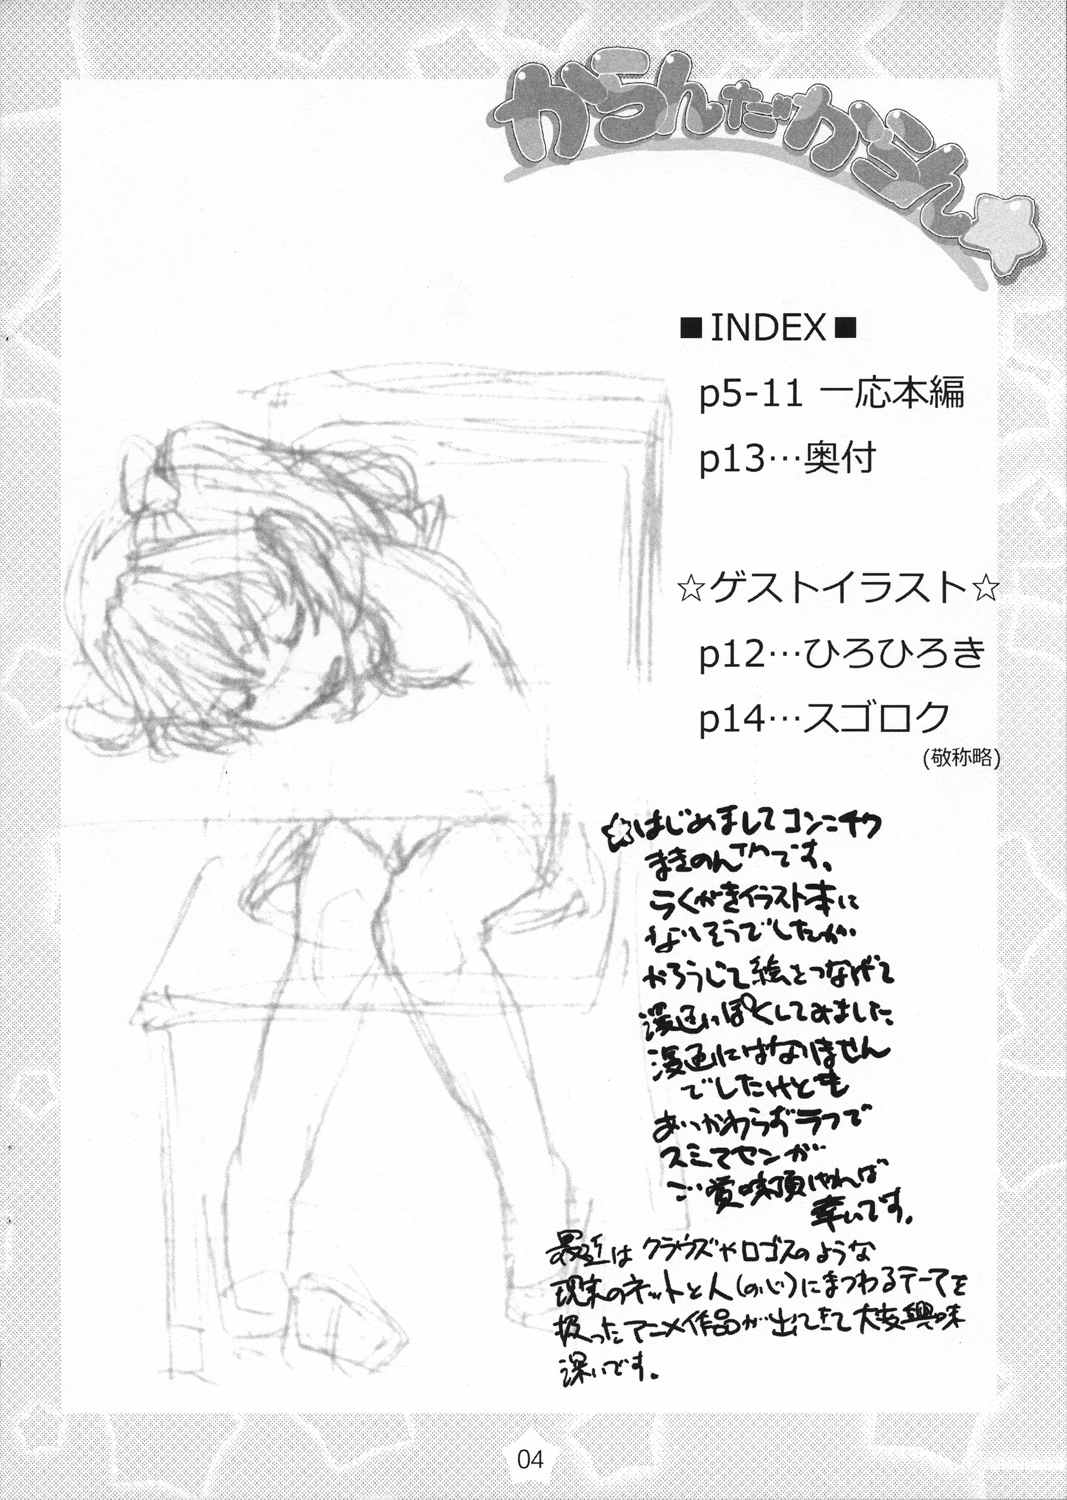 からんだからん☆
■INDEX■
p5-11 一応本編
p13…奥付
☆ゲストイラスト☆
p12…ひろひろき
p14…スゴロク
(敬称略)
☆はじめましてコンニチワ
まきのんです。
らくがきイラスト本に
なりそうでしたが
かろうじて絵をつなげて
漫画っぽくしてみました
漫画にはなりません
でしたけども
あいかわらずラフで
スミマセンが
ご賞味頂ければ
幸いです。
最近はクラウズやロゴスのような
現末のネットと人(の心)にまつわるテーマを
扱ったアニメ作品が出てきて大変興味
深いです。
04